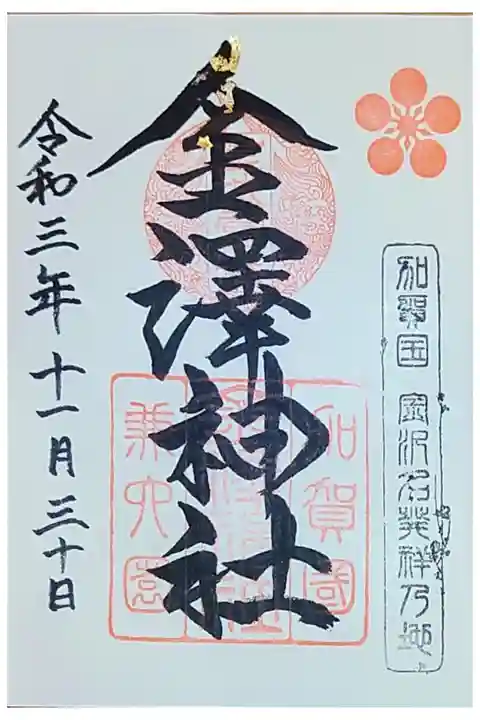 加賀国 金沢名発祥乃地
金澤神社
加賀國
兼六園
令和三年十一月三十日